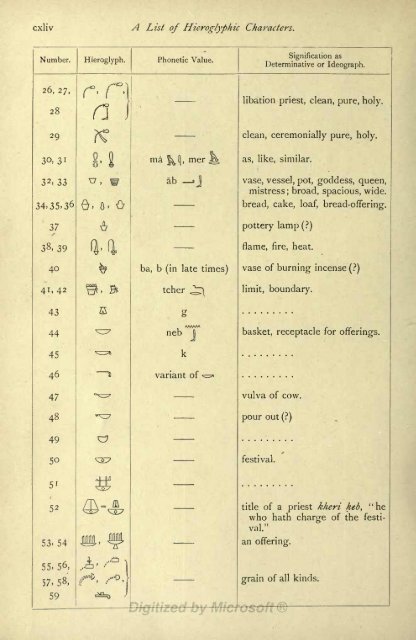 cxliv A List of Hieroglyphic Characters.
Number. Hieroglyph. Phonetic Value. Signification as
Determinative or Ideograph.
26, 27,
28 — libation priest, clean, pure, holy.
29 — clean, ceremonially pure, holy.
30, 31 mȧ, mer as, like, similar.
32, 33 āb vase, vessel, pot, goddess, queen,
mistress; broad, spacious, wide.
34, 35, 36 — bread, cake, loaf, bread-offering.
37 — pottery lamp (?)
38, 39 — flame, fire, heat.
40 ba, b (in late times) vase of burning incense (?)
41, 42 tcher limit, boundary.
43 g . . . . . . . . .
44 neb basket, receptacle for offerings.
45 k . . . . . . . . .
46 variant of . . . . . . . . .
47 — vulva of cow.
48 — pour out (?)
49 — . . . . . . . . .
50 — festival.
51 — . . . . . . . . .
52 — title of a priest kheri ḥeb, "he
who hath charge of the festi-
val."
53, 54 — an offering.
55, 56,
57, 58, — grain of all kinds.
59
Digitized by Microsoft®